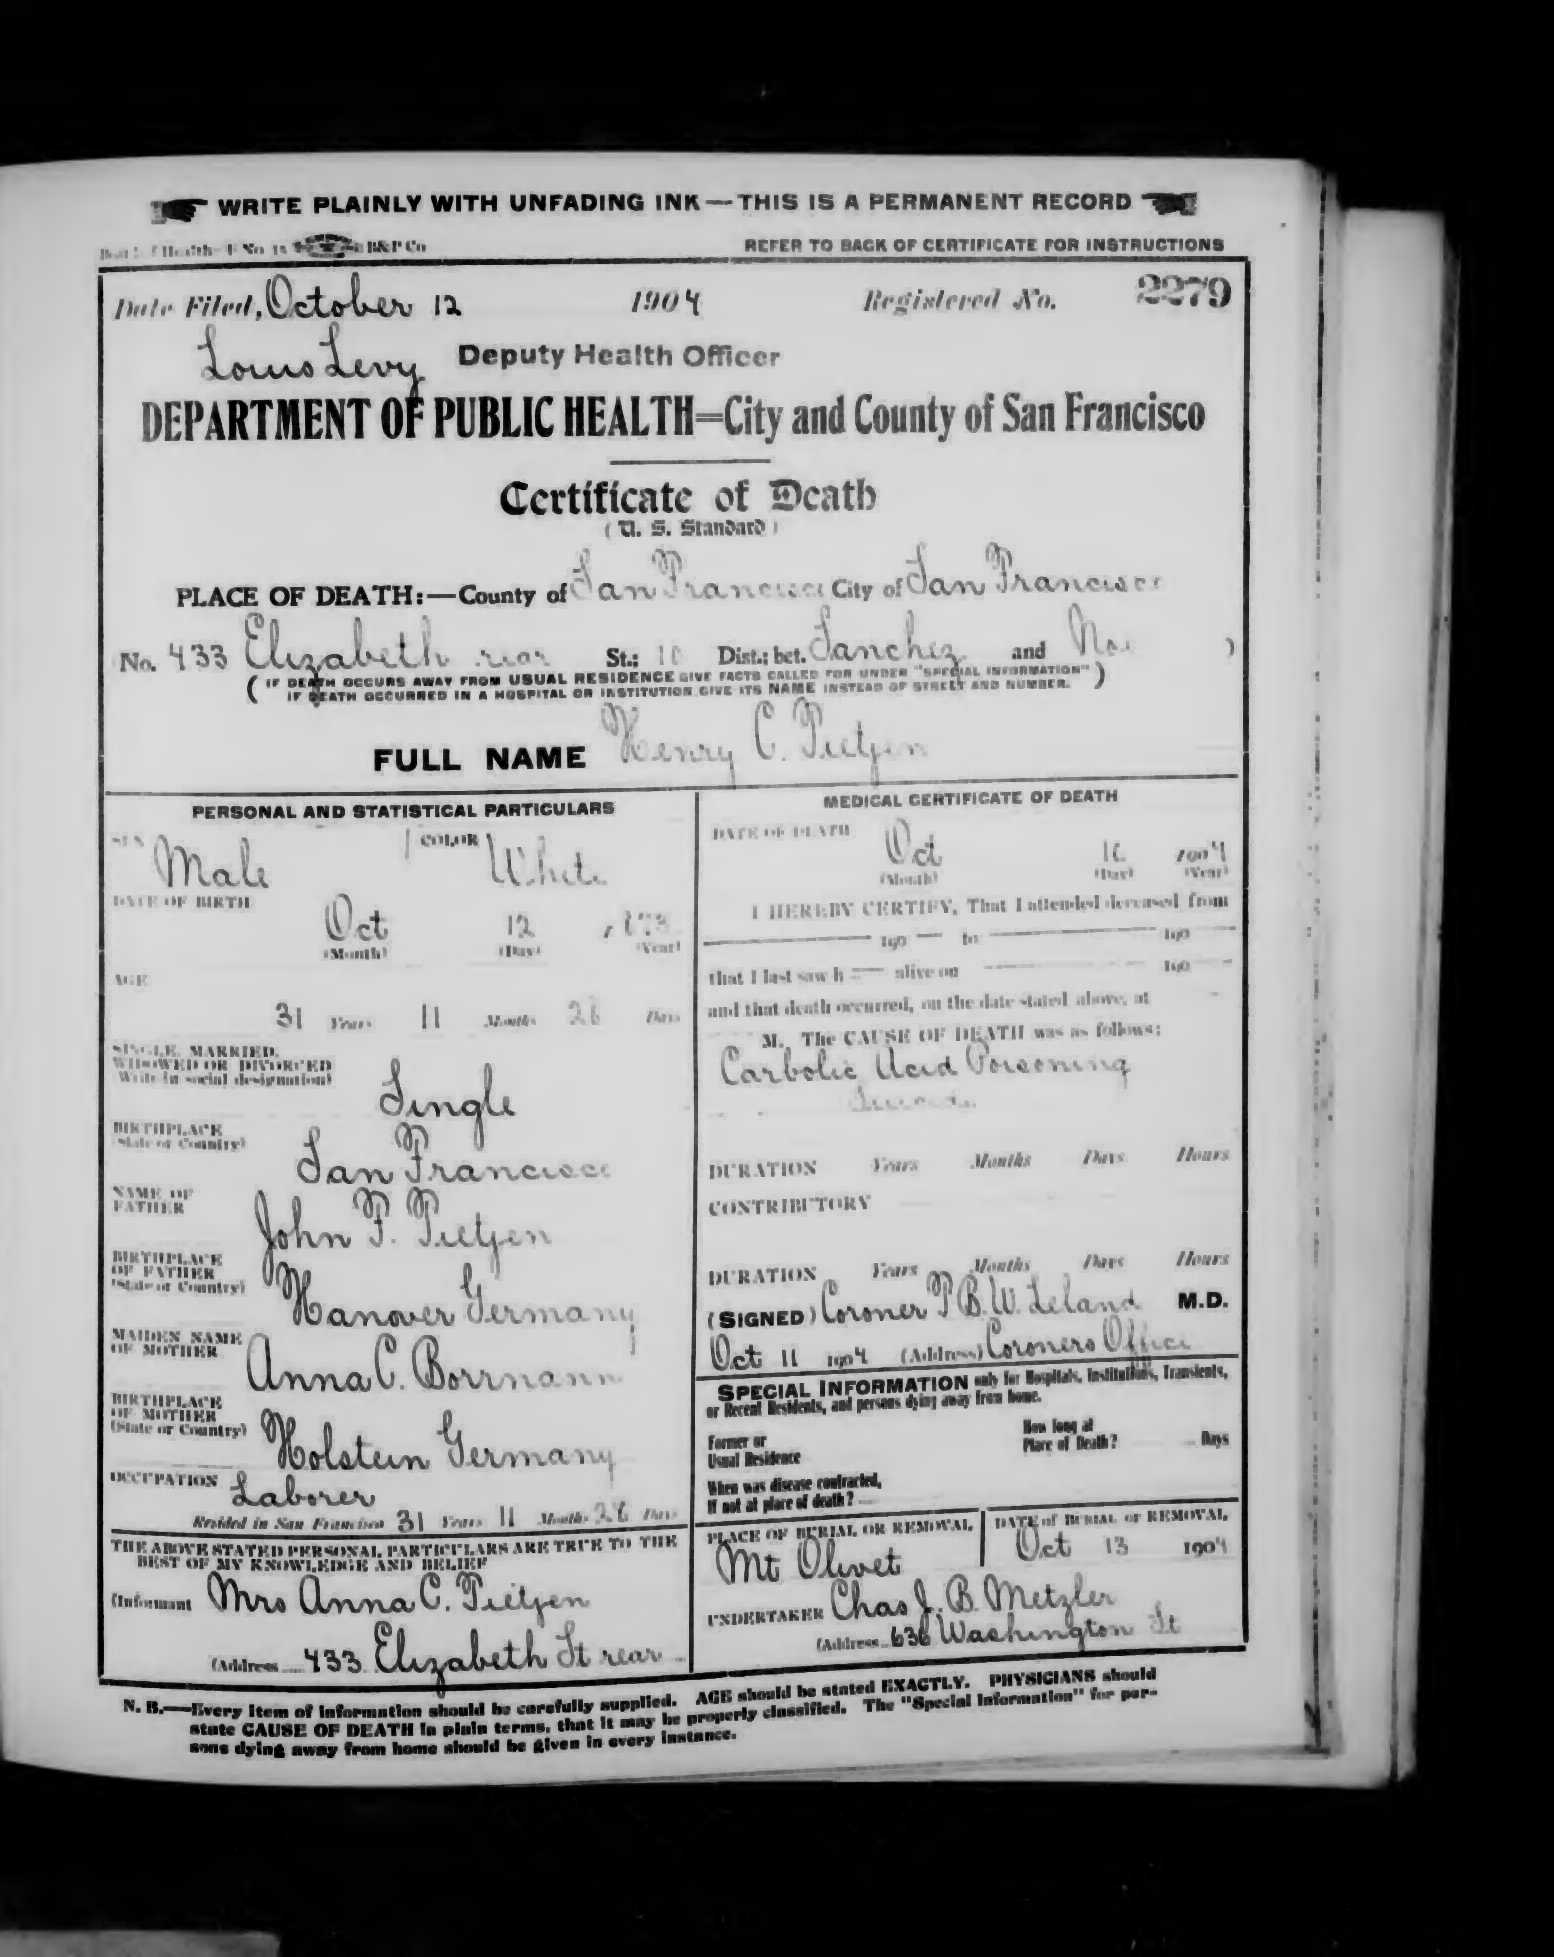 WRITE PLAINLY WITH UNFADING INK — THIS IS A PERMANENT RECORD
B&P Co REFER TO BACK OF CERTIFICATE FOR INSTRUCTIONS
Date Filed, October 12 1904 Registered No. 2279
Louis Levy Deputy Health Officer
DEPARTMENT OF PUBLIC HEALTH=City and County of San Francisco
Certificate of Death
(U. S. Standard)
PLACE OF DEATH:—County of San Francisco City of San Francisco
No. 433 Elizabeth rear St.; 10 Dist.; bet. Sanchez and Noe )
(IF DEATH OCCURS AWAY FROM USUAL RESIDENCE GIVE FACTS CALLED FOR UNDER "SPECIAL INFORMATION"
IF DEATH OCCURRED IN A HOSPITAL OR INSTITUTION GIVE ITS NAME INSTEAD OF STREET AND NUMBER.)
FULL NAME Henry C. Tietjen
PERSONAL AND STATISTICAL PARTICULARS
SEX Male COLOR White
DATE OF BIRTH
Oct 12 1873
(Month) (Day) (Year)
AGE
31 Years 11 Months 28 Days
SINGLE, MARRIED,
WIDOWED OR DIVORCED
(Write in social designation)
Single
BIRTHPLACE
(State or Country)
San Francisco
NAME OF
FATHER
John F. Tietjen
BIRTHPLACE
OF FATHER
(State or Country)
Hanover Germany
MAIDEN NAME
OF MOTHER
Anna C. Borrmann
BIRTHPLACE
OF MOTHER
(State or Country)
Holstein Germany
OCCUPATION Laborer
Resided in San Francisco 31 Years 11 Months 28 Days
THE ABOVE STATED PERSONAL PARTICULARS ARE TRUE TO THE
BEST OF MY KNOWLEDGE AND BELIEF
(Informant Mrs Anna C. Tietjen
(Address 433 Elizabeth St rear
MEDICAL CERTIFICATE OF DEATH
DATE OF DEATH
Oct 10 1904
(Month) (Day) (Year)
I HEREBY CERTIFY, That I attended deceased from
190 to 190
that I last saw h alive on 190
and that death occurred, on the date stated above, at
M. The CAUSE OF DEATH was as follows:
Carbolic Acid Poisoning
Suicide
DURATION Years Months Days Hours
CONTRIBUTORY
DURATION Years Months Days Hours
(SIGNED) Coroner T B. W. Leland M.D.
Oct 11 1904 (Address) Coroners Office
SPECIAL INFORMATION only for Hospitals, Institutions, Transients,
or Recent Residents, and persons dying away from home.
Former or
Usual Residence
How long at
Place of Death? Days
When was disease contracted,
If not at place of death?
PLACE OF BURIAL OR REMOVAL
Mt Olivet
DATE of BURIAL or REMOVAL
Oct 13 1904
UNDERTAKER Chas J. B. Metzler
(Address 636 Washington St
N. B.—Every item of information should be carefully supplied. AGE should be stated EXACTLY. PHYSICIANS should
state CAUSE OF DEATH in plain terms, that it may be properly classified. The "Special Information" for per-
sons dying away from home should be given in every instance.